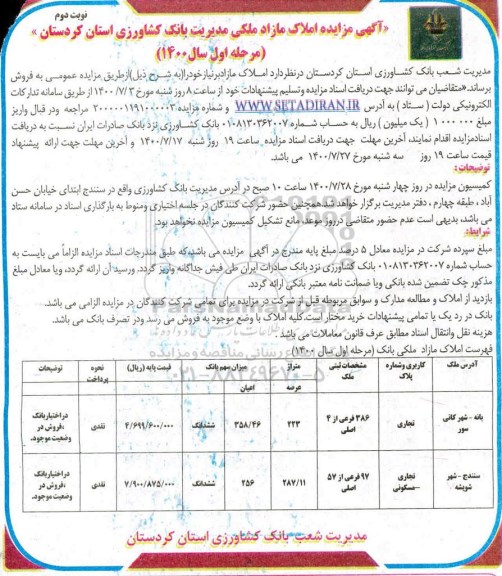 نوبت دوم
«آگهی مزایده املاک مازاد ملکی مدیریت بانک کشاورزی استان کردستان»
(مرحله اول سال۱۴۰۰)
مدیریت شعب بانک کشاورزی استان کردستان درنظردارد املاک مازادبرنیازخودرا(به شرح ذیل)ازطریق مزایده عمومی به فروش
برساند.«متقاضیان می توانند جهت دریافت اسناد مزایده وتسلیم پیشنهادات خود از ساعت ۸ روز شنبه مورخ ۱۴۰۰/۷/۳ از طریق سامانه تدارکات
الکترونیکی دولت (ستاد) به آدرس WWW.SETADIRAN.IR و شماره مزایده ۲۰۰۰۰۰۱۱۹۱۰۰۰۰۰۳ مراجعه ودر قبال واریز
مبلغ ۱۰۰۰ ۰۰۰ ( یک میلیون ) ریال به حساب شماره ۰۱۰۸۱۳۰۳۶۲۰۰۷ بانک کشاورزی نزد بانک صادرات ایران نسبت به دریافت
اسنادمزایده اقدام نمایند، آخرین مهلت جهت دریافت اسناد مزایده ساعت ۱۹ روز شنبه ۱۴۰۰/۷/۱۷ و آخرین مهلت جهت ارائه پیشنهاد
قیمت ساعت ۱۹ روز سه شنبه مورخ ۱۴۰۰/۷/۲۷ می باشد.
توضیحات:
کمیسیون مزایده در روز چهار شنبه مورخ ۱۴۰۰/۷/۲۸ ساعت ۱۰ صبح در آدرس مدیریت بانک کشاورزی واقع در سنندج ابتدای خیابان حسن
آباد ، طبقه چهارم ، دفتر مدیریت برگزار خواهد شد.همچنین حضور شرکت کنندگان در جلسه اختیاری ومنوط به بارگذاری اسناد در سامانه ستاد
می باشد، بدیهی است عدم حضور متقاضی درروز موعد، مانع تشکیل کمیسیون مزایده نخواهد بود.
شرایط:
مبلغ سپرده شرکت در مزایده معادل ۵ درصد مبلغ پایه مندرج در آگهی مزایده می باشد،که طبق مندرجات اسناد مزایده الزاماً می بایست به
حساب شماره ۰۱۰۸۱۳۰۳۶۲۰۰۷ بانک کشاورزی نزد بانک صادرات ایران طی فیش جداگانه واریز گردد، ورسید آن ارائه گردد، ویا معادل مبلغ
مذکور چک تضمین شده بانکی ویا ضمانت نامه معتبر بانکی ارائه گردد.
بازدید از املاک و مطالعه مدارک و سوابق مربوطه قبل از شرکت در مزایده برای تمامی شرکت کنندگان در مزایده الزامی می باشد.
بانک در رد یک یا تمامی پیشنهادات خرید مختار است.کلیه املاک با وضع موجود به فروش می رسد ودر تصرف بانک می باشد.
هزینه نقل وانتقال اسناد مطابق عرف قانون معاملات می باشد.
فهرست املاک مازاد ملکی بانک (مرحله اول سال ۱۴۰۰)
آدرس ملک | کاربری وشماره پلاک | مشخصات ثبتی ملک | متراژ عرصه | میزان سهم بانک اعیان | قیمت پایه (ریال) | نحوه پرداخت | توضیحات
بانه - شهر کانی سور | تجاری | ۳۸۶ فرعی از ۴ اصلی | ۲۲۳ | ۳۵۸/۴۶ | ششدانگ | ۴/۶۹۹/۶۰۰/۰۰۰ | نقدی | در اختیار بانک ،فروش در وضعیت موجود.
سنندج - شهر شویشه | تجاری -مسکونی | ۹۷ فرعی از ۵۷ اصلی | ۲۸۷/۱۱ | ۲۵۶ | ششدانگ | ۷/۹۰۰/۸۷۵/۰۰۰ | نقدی | در اختیار بانک ،فروش در وضعیت موجود.
مدیریت شعب بانک کشاورزی استان کردستان